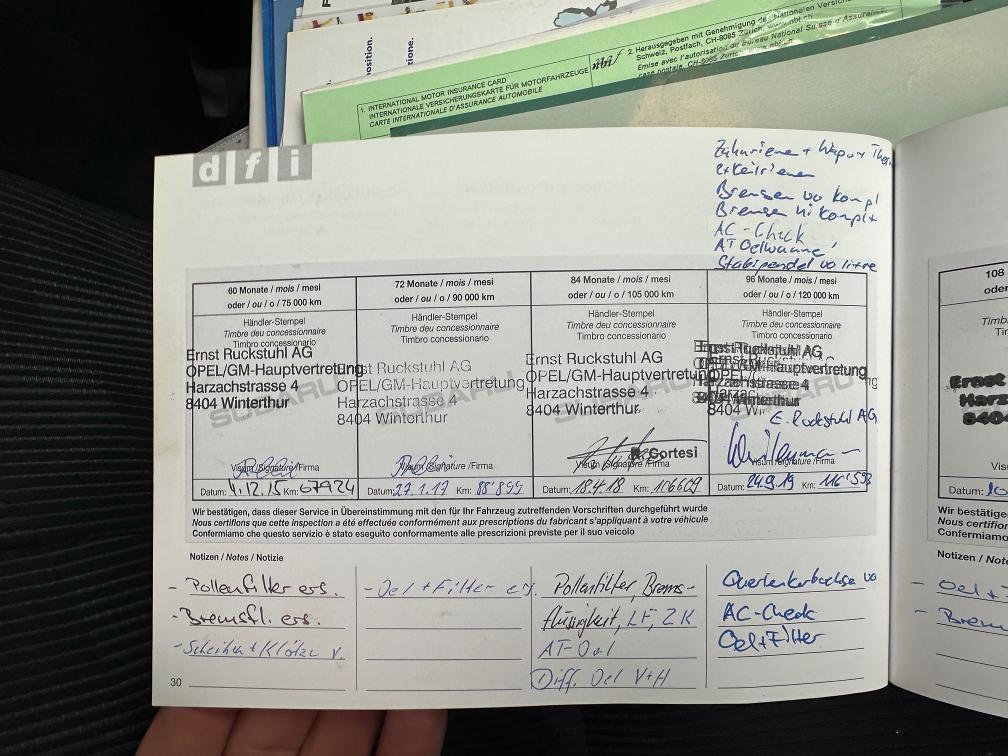 osition.
zione.
1. INTERNATIONAL MOTOR INSURANCE CARD
INTERNATIONALE VERSICHERUNGSKARTE FÜR MOTORFAHRZEUGE
CARTE INTERNATIONALE D'ASSURANCE AUTOMOBILE
nbi
2. Herausgegeben mit Genehmigung des Nationalen Versich
Schweiz, Postfach, CH-8085 Zürich, www.nbi.ch
Emise avec l'autorisation du Bureau National Suisse d'Assurance,
case postale, CH-8085 Zürich, www.nbi.ch
dfi
Zahnriemen + Wapu + Ther
+ Keilriemen
Bremsen vo kompl
Bremsen hi komplt
AC-Check
AT Oelwanne,
Stabipendel vo li+re
60 Monate / mois / mesi
oder / ou / o / 75 000 km
Händler-Stempel
Timbre du concessionnaire
Timbro concessionario
Ernst Ruckstuhl AG
OPEL/GM-Hauptvertretung
Harzachstrasse 4
8404 Winterthur
SUBARU
Visum/Signature/Firma
Datum: 4.12.15 Km: 67924
72 Monate / mois / mesi
oder / ou / o / 90 000 km
Händler-Stempel
Timbre deu concessionnaire
Timbro concessionario
Ernst Ruckstuhl AG
OPEL/GM-Hauptvertretung
Harzachstrasse 4
8404 Winterthur
Visum/Signature /Firma
Datum: 27.1.17 Km: 88'899
84 Monate / mois / mesi
oder / ou / o / 105 000 km
Händler-Stempel
Timbre deu concessionnaire
Timbro concessionario
Ernst Ruckstuhl AG
OPEL/GM-Hauptvertretung
Harzachstrasse 4
8404 Winterthur
R. Cortesi
Visum /Signature /Firma
Datum: 18.4.18 Km: 106609
96 Monate / mois / mesi
oder / ou / o / 120 000 km
Händler-Stempel
Timbre deu concessionnaire
Timbro concessionario
Ernst Ruckstuhl AG
OPEL/GM-Hauptvertretung
Harzachstrasse 4
8404 Winterthur
E. Ruckstuhl AG
Visum/Signature /Firma
Datum: 24.9.19 Km: 116'593
Wir bestätigen, dass dieser Service in Übereinstimmung mit den für Ihr Fahrzeug zutreffenden Vorschriften durchgeführt wurde
Nous certifions que cette inspection a été effectuée conformément aux prescriptions du fabricant s'appliquant à votre véhicule
Confermiamo che questo servizio è stato eseguito conformamente alle prescrizioni previste per il suo veicolo
Notizen / Notes / Notizie
- Pollenfilter ers.
- Bremsfl. ers.
- Scheiben + Klötze v.
- Oel + Filter ers.
Pollenfilter, Brems-
flüssigkeit, LF, ZK
AT-Oel
Diff. Oel V+H
Querlenkerbuchse vo
AC-Check
Oel+Filter
30
108
oder
Timb
Ernst
Harz
840
Datum: 10
Wir bestätige
Nous certifion
Confermiamo
Notizen / Note
- Oel +
- Brem